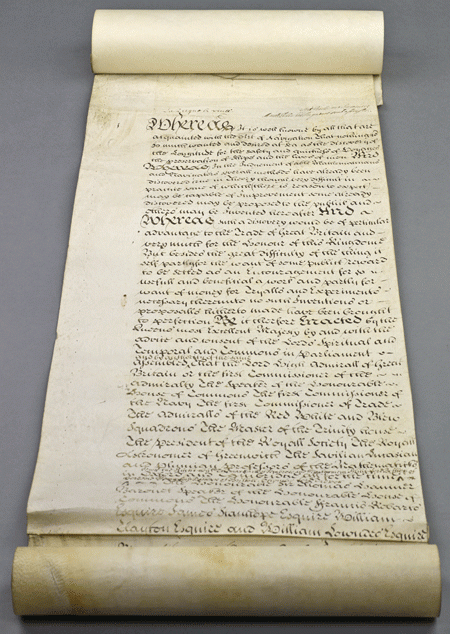 Whereas It is well known by all that are
acquainted with the Art of Navigation That nothing is
so much wanted and desired at Sea as the discovery of
the Longitude for the safety and quickness of Voyages
the preservation of Ships and the Lives of men And
Whereas In the Judgement of able Mathematicians
and Navigators severall methods have already been
discovered true in Theory though very difficult in
practice some of which there is reason to expect
may be capable of improvement some already
discovered may be proposed to the publick and
others may be Invented hereafter And
Whereas such a discovery would be of particular
advantage to the Trade of Great Britain and
very much for the Honour of this Kingdome
But besides the great difficulty of the thing it
self partly for the want of some publick reward
to be settled as an Encouragement for so
usefull and beneficial a work and partly for
want of money for Tryalls and Experiments
necessary thereunto no such Inventions or
proposalls hitherto made have been brought
to perfection Be it therefore Enacted by the
Queens most Excellent Majesty by and with the
advice and consent of the Lords Spiritual and
Temporal and Commons in Parliament
Assembled That the Lord High Admirall of Great
Britain or the first Commissioner of the
Admiralty The Speaker of the Honourable
House of Commons The first Commissioner of
the Navy The first Commissioner of Trade
The Admiralls of the Red White and Blew
Squadrons The Master of the Trinity house
The president of the Royall Society The Royall
Astronomer of Greenwich The Savilian Lucasian
and Plumian professors of the Mathematicks
Baronet Speaker of the Honourable House of
Commons The Honourable Francis Robarts
Esquire James Stanhope Esquire William
Clayton Esquire and William Lowndes Esquire